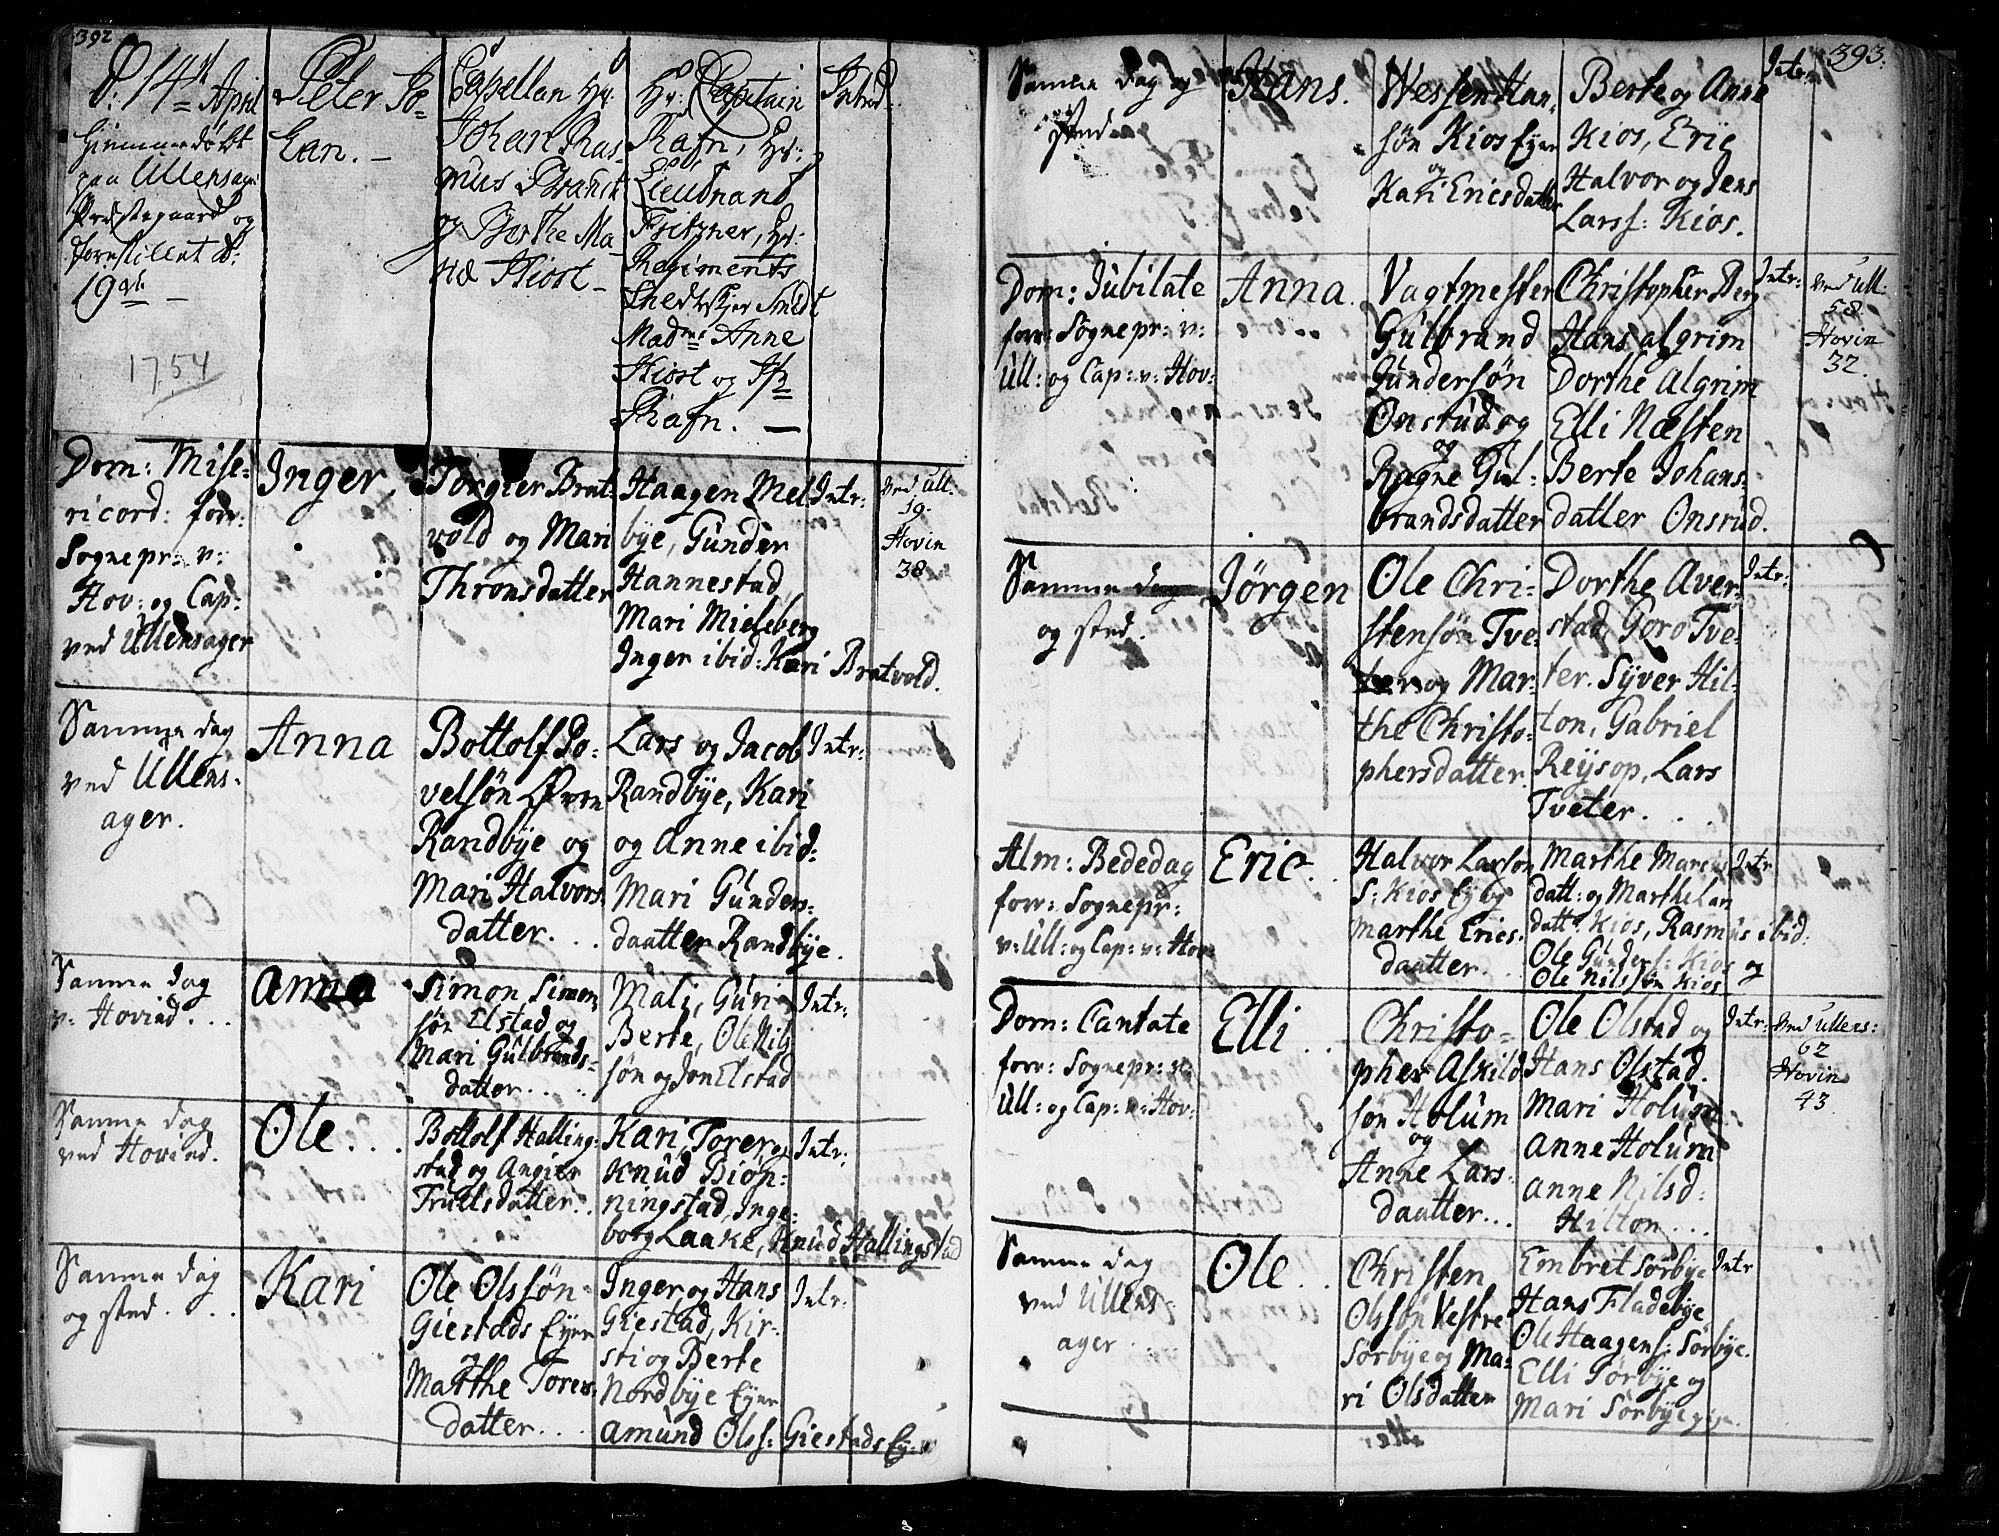 392
d: 14de April
hiemmedöbt
paa Ullensager
Prestegaard og
fremstillet d:
19de
1754
Peter Jo-
han.
Capellan Hr:
Johan Ras-
mus Franck
og Berthe Ma-
riæ Kiost
Hr: Captain
Rafn, Hr:
Lieutnant
Fritzner, Hr:
Regiments
Mad:me Anne
Kiost og
Rafn.
Introd:
Dom: Mise-
ricord: forr:
Sognepr: v:
Hov: og Cap:
ved Ullensager
Inger.
Torgier Brat-
vold og Mari
Thronsdatter
Haagen Mel-
bye, Gunder
Hannestad,
Mari Mieleberg
Inger ibid: Kari Bratvold.
Intr:
Ved Ull.
39.
Hovin
38
Samme dag
ved Ullens-
ager.
Anna
Bottolf Po-
velsön Övre
Randbye og
Mari Halvors-
datter.
Lars og Jacob
Randbye, Kari
og Anne ibid:
Mari Gunders-
daatter Randbye.
Intr:
Samme dag
v: Hovind.
Anna
Simon Simon-
sön Elstad og
Mari Gulbrands-
datter.
Mali, Guri
Berte, Ole Nils
sön og Jon Elstad
Intr:
Samme dag
ved Hovind.
Ole
Bottolf Halling-
stad og Angier
Trulsdatter.
Kari, Torer og
Knud Biön-
ningstad, Inge-
borg Laake, Knud Hallingstad
Intr:
Samme dag
og sted.
Kari
Ole Olssön
Giestads Eyer
og
Marthe Tores-
datter.
Inger og Hans
Giestad, Kir-
sti og Berte
Nordbye Eyer
Amund Olss: Giestads Ey:
Intr:
393.
Samme dag og
sted
Hans.
Wessen Han-
sön Kios Eyer
og
Kari Ericsdatter
Berte og Anne
Kios, Eric
Halvor og Jens
Larss: Kios.
Intr:
Dom: Jubilate
forr: Sognepr: v:
Ull: og Cap: v: Hov:
Anna.
Vagtmester
Gulbrand
Gundersön
Onsrud og
og
Ragne Gul-
brandsdatter
Christopher Berg
Hans Algrim
Dorthe Algrim
Elli Næsten
Berte Johans-
datter Onsrud.
Intr:
Ved Ull.
58.
Hovin
32.
Samme dag
og sted.
Jörgen
Ole Chri-
stensön Tve-
ter og Mar-
the Christo-
phersdatter.
Dorthe Aver-
stad, Goro Tve-
ter. Syver Hil-
ton, Gabriel
Reysop, Lars
Tveter.
Intr:
Alm: Bededag
forr: Sognepr:
v: Ull: og Cap: v: Hov:
Eric.
Halvor Larsön
S: Kios Ey og
Marthe Erics-
daatter.
Marthe Marcus
datt: og Marthe Lars
datt: Kios, Rasmus ibid.
Ole Gunders: Kios og
Ole Nilssön Kios
Intr
Dom: Cantate
forr: Sognepr: v:
Ull: og Cap: v: Hov:
Elli
Christo-
pher Askild
sön Holum
og
Anne Lars-
daatter.
Ole Olstad og
Hans Olstad.
Mari Holum
Anne Holum
Anne Nilsd:
Hilton.
Intr:
Ved Ullens:
62
Hovin
43
Samme dag
ved Ullens-
ager
Ole
Christen
Olssön Vestre
Sörbye og Ma-
ri Olsdatter
Embret Sörbye
Hans Fladebye
Ole Haagens: Sörbye.
Elli Sörbye og
Mari Sörbye
Intr